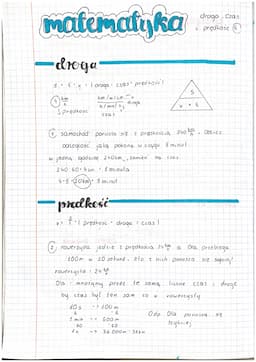 matematyka
droga, czas
i prędkość
droga
s = v · t (droga = czas · prędkość)
km
h
km/h/cm
prędkość
droga
czas
s
v · t
samochód porusza się z prędkością 240 km/h. Oblicz
odległość jaką pokona w ciągu 5 minut.
w jedną godzinę 240km, zamień na czas
240 : 60 = 4km - 1 minuta
4 · 5 = 20km - 5 minut
prędkość
v = s/t (prędkość = droga : czas)
rowerzysta jedzie z prędkością 24 km/h a Ola przebiegła
100m w 10 sekund. Kto z nich porusza się szybciej
rowerzysta - 24 km/h
Ola: mnożymy przez tę samą liczbę czas i drogę
by czas był ten sam co u rowerzysty
10s -> 100m
1 min -> 600m
60 60
1h -> 36000m = 36km
Odp. Ola porusza się
szybciej